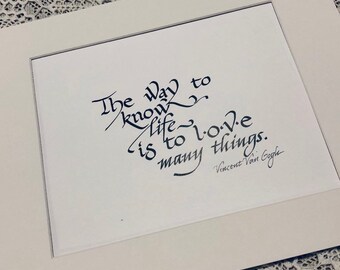 The way to
know
life~
is to l·o·v·e
many things.
Vincent Van Gogh